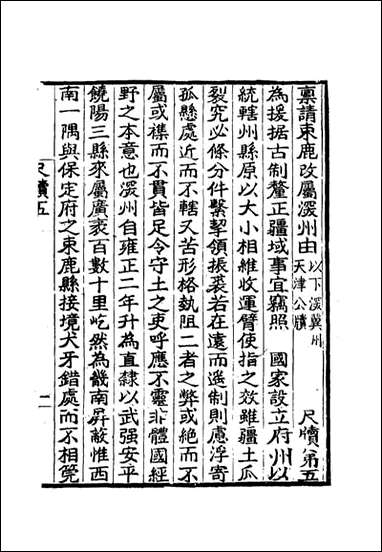 稟請束鹿改屬深州由 以下深冀州天津公牘 尺牘公第五
為援据古制釐正疆域事宜竊照 國家設立府州以
統轄州縣原以大小相維收運臂使指之效雖疆土瓜
裂究必條分件繫挈領振裘若在遠而遥制則慮浮寄
孤懸處近而不轄又苦形格埶阻二者之弊或絕而不
屬或襍而不貫皆足令守土之吏呼應不靈非體國經
野之本意也深州自雍正二年升為直隸以武強安平
饒陽三縣來屬廣袤百數十里屹然為畿南屏蔽惟西
南一隅與保定府之束鹿縣接境犬牙錯處而不相筦
尺牘五
二